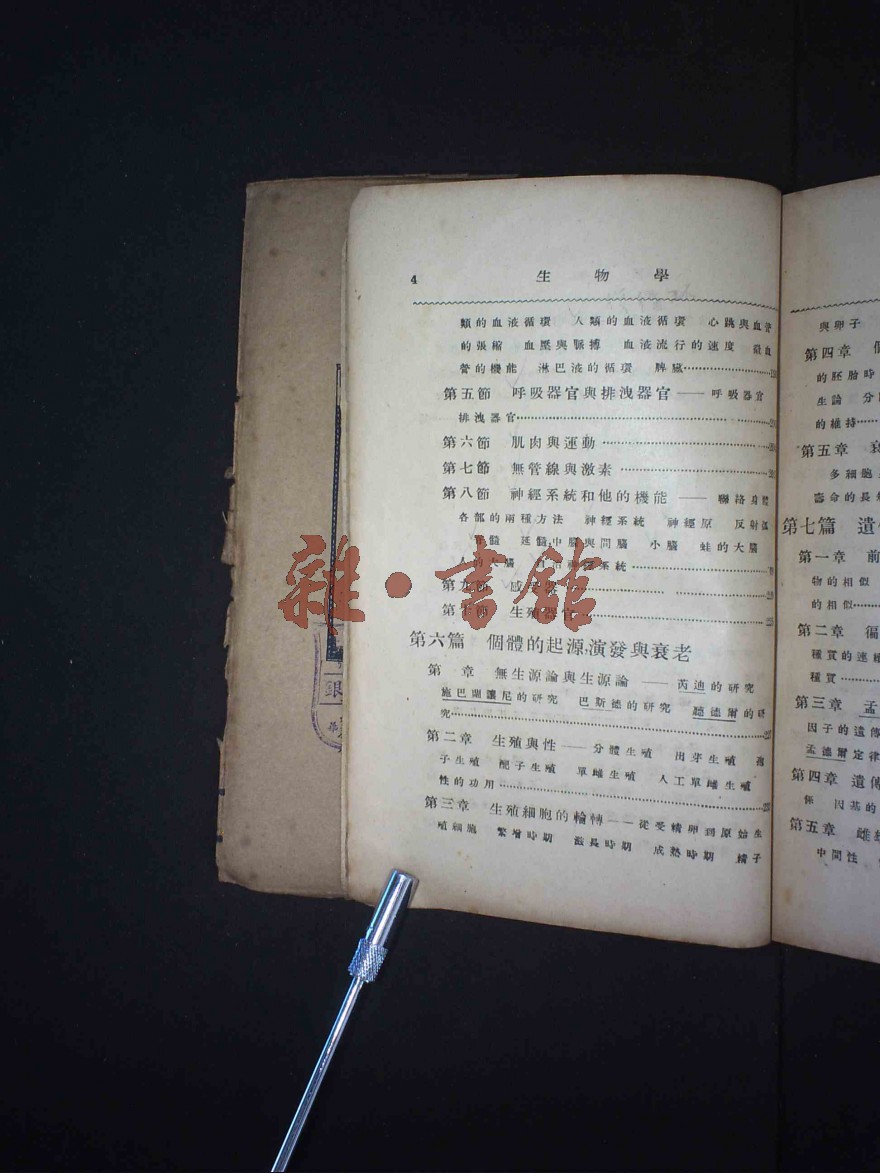 4 生物學
類的血液循環 人類的血液循環 心跳與血管
的張縮 血壓與脈搏 血液流行的速度 微血
管的機能 淋巴液的循環 脾臟
第五節 呼吸器官與排洩器官——呼吸器官
排洩器官
第六節 肌肉與運動
第七節 無管線與激素
第八節 神經系統和他的機能——聯絡身體
各部的兩種方法 神經系統 神經原 反射弧
脊髓 延髓,中腦與間腦 小腦 蛙的大腦
人的大腦 自治神經系統
第九節 感受器
第十節 生殖器官
第六篇 個體的起源,演發與衰老
第 章 無生源論與生源論——芮迪的研究
施巴蘭讓尼的研究 巴斯德的研究 聽德爾的研
究
第二章 生殖與性——分體生殖 出芽生殖 孢
子生殖 配子生殖 單雌生殖 人工單雌生殖
性的功用
第三章 生殖細胞的輪轉——從受精卵到原始生
殖細胞 繁增時期 滋長時期 成熟時期 精子
與卵子
第四章
的胚胎時
生論
的維持
第五章
多細胞
壽命的長
第七篇 遺
第一章 前
物的相似
的相似
第二章
種質的連
種質
第三章 孟
因子的遺傳
孟德爾定律
第四章 遺傳
係 因基的
第五章 雌雄
中間性
雜·書館
銀